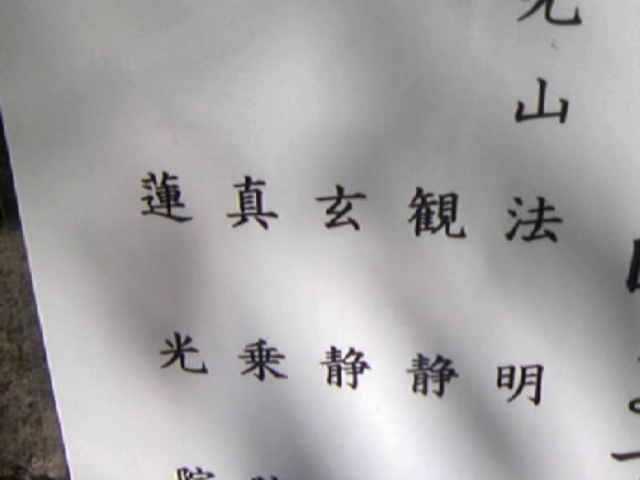 山法明
観静
玄静
真乗
蓮光院